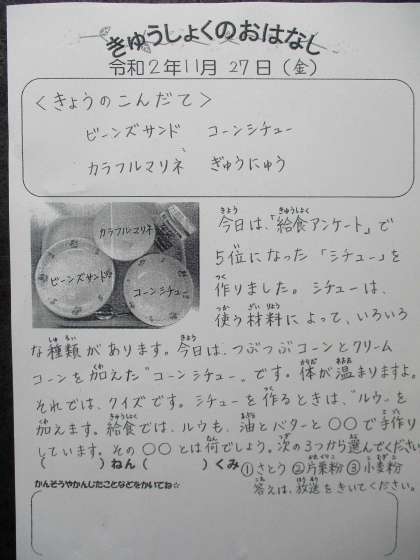 きゅうしょくのおはなし
令和2年11月27日(金)
＜きょうのこんだて＞
ビーンズサンド コーンシチュー
カラフルマリネ ぎゅうにゅう
カラフルマリネ
ビーンズサンド
コーンシチュー
今日は、「給食アンケート」で
5位になった「シチュー」を
作りました。シチューは、
使う材料によって、いろいろ
な種類があります。今日は、つぶつぶコーンとクリーム
コーンを加えた"コーンシチュー"です。体が温まりますよ。
それでは、クイズです。シチューを作るときは、"ルウ"を
加えます。給食では、ルウも、油とバターと〇〇で手作り
しています。その〇〇とは何でしょう。次の3つから選んでください
( )ねん( )くみ ①さとう ②片栗粉 ③小麦粉
かんそうやかんじたことなどをかいてね☆ 答えは、放送をきいてください。